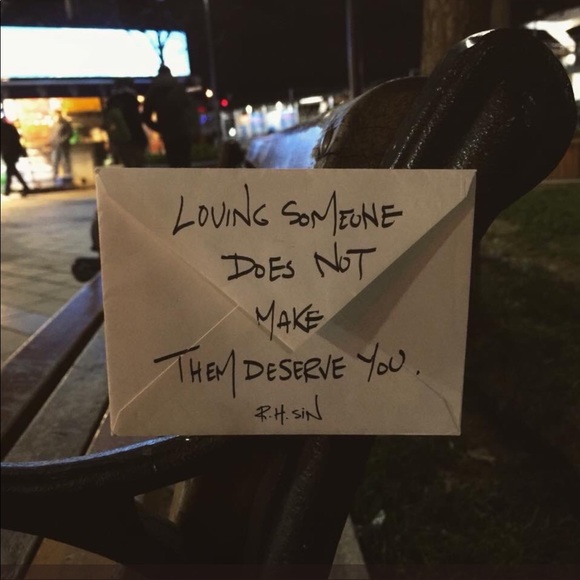 LOVING SOMEONE
DOES NOT
MAKE
THEM DESERVE YOU.
R.H. SIN